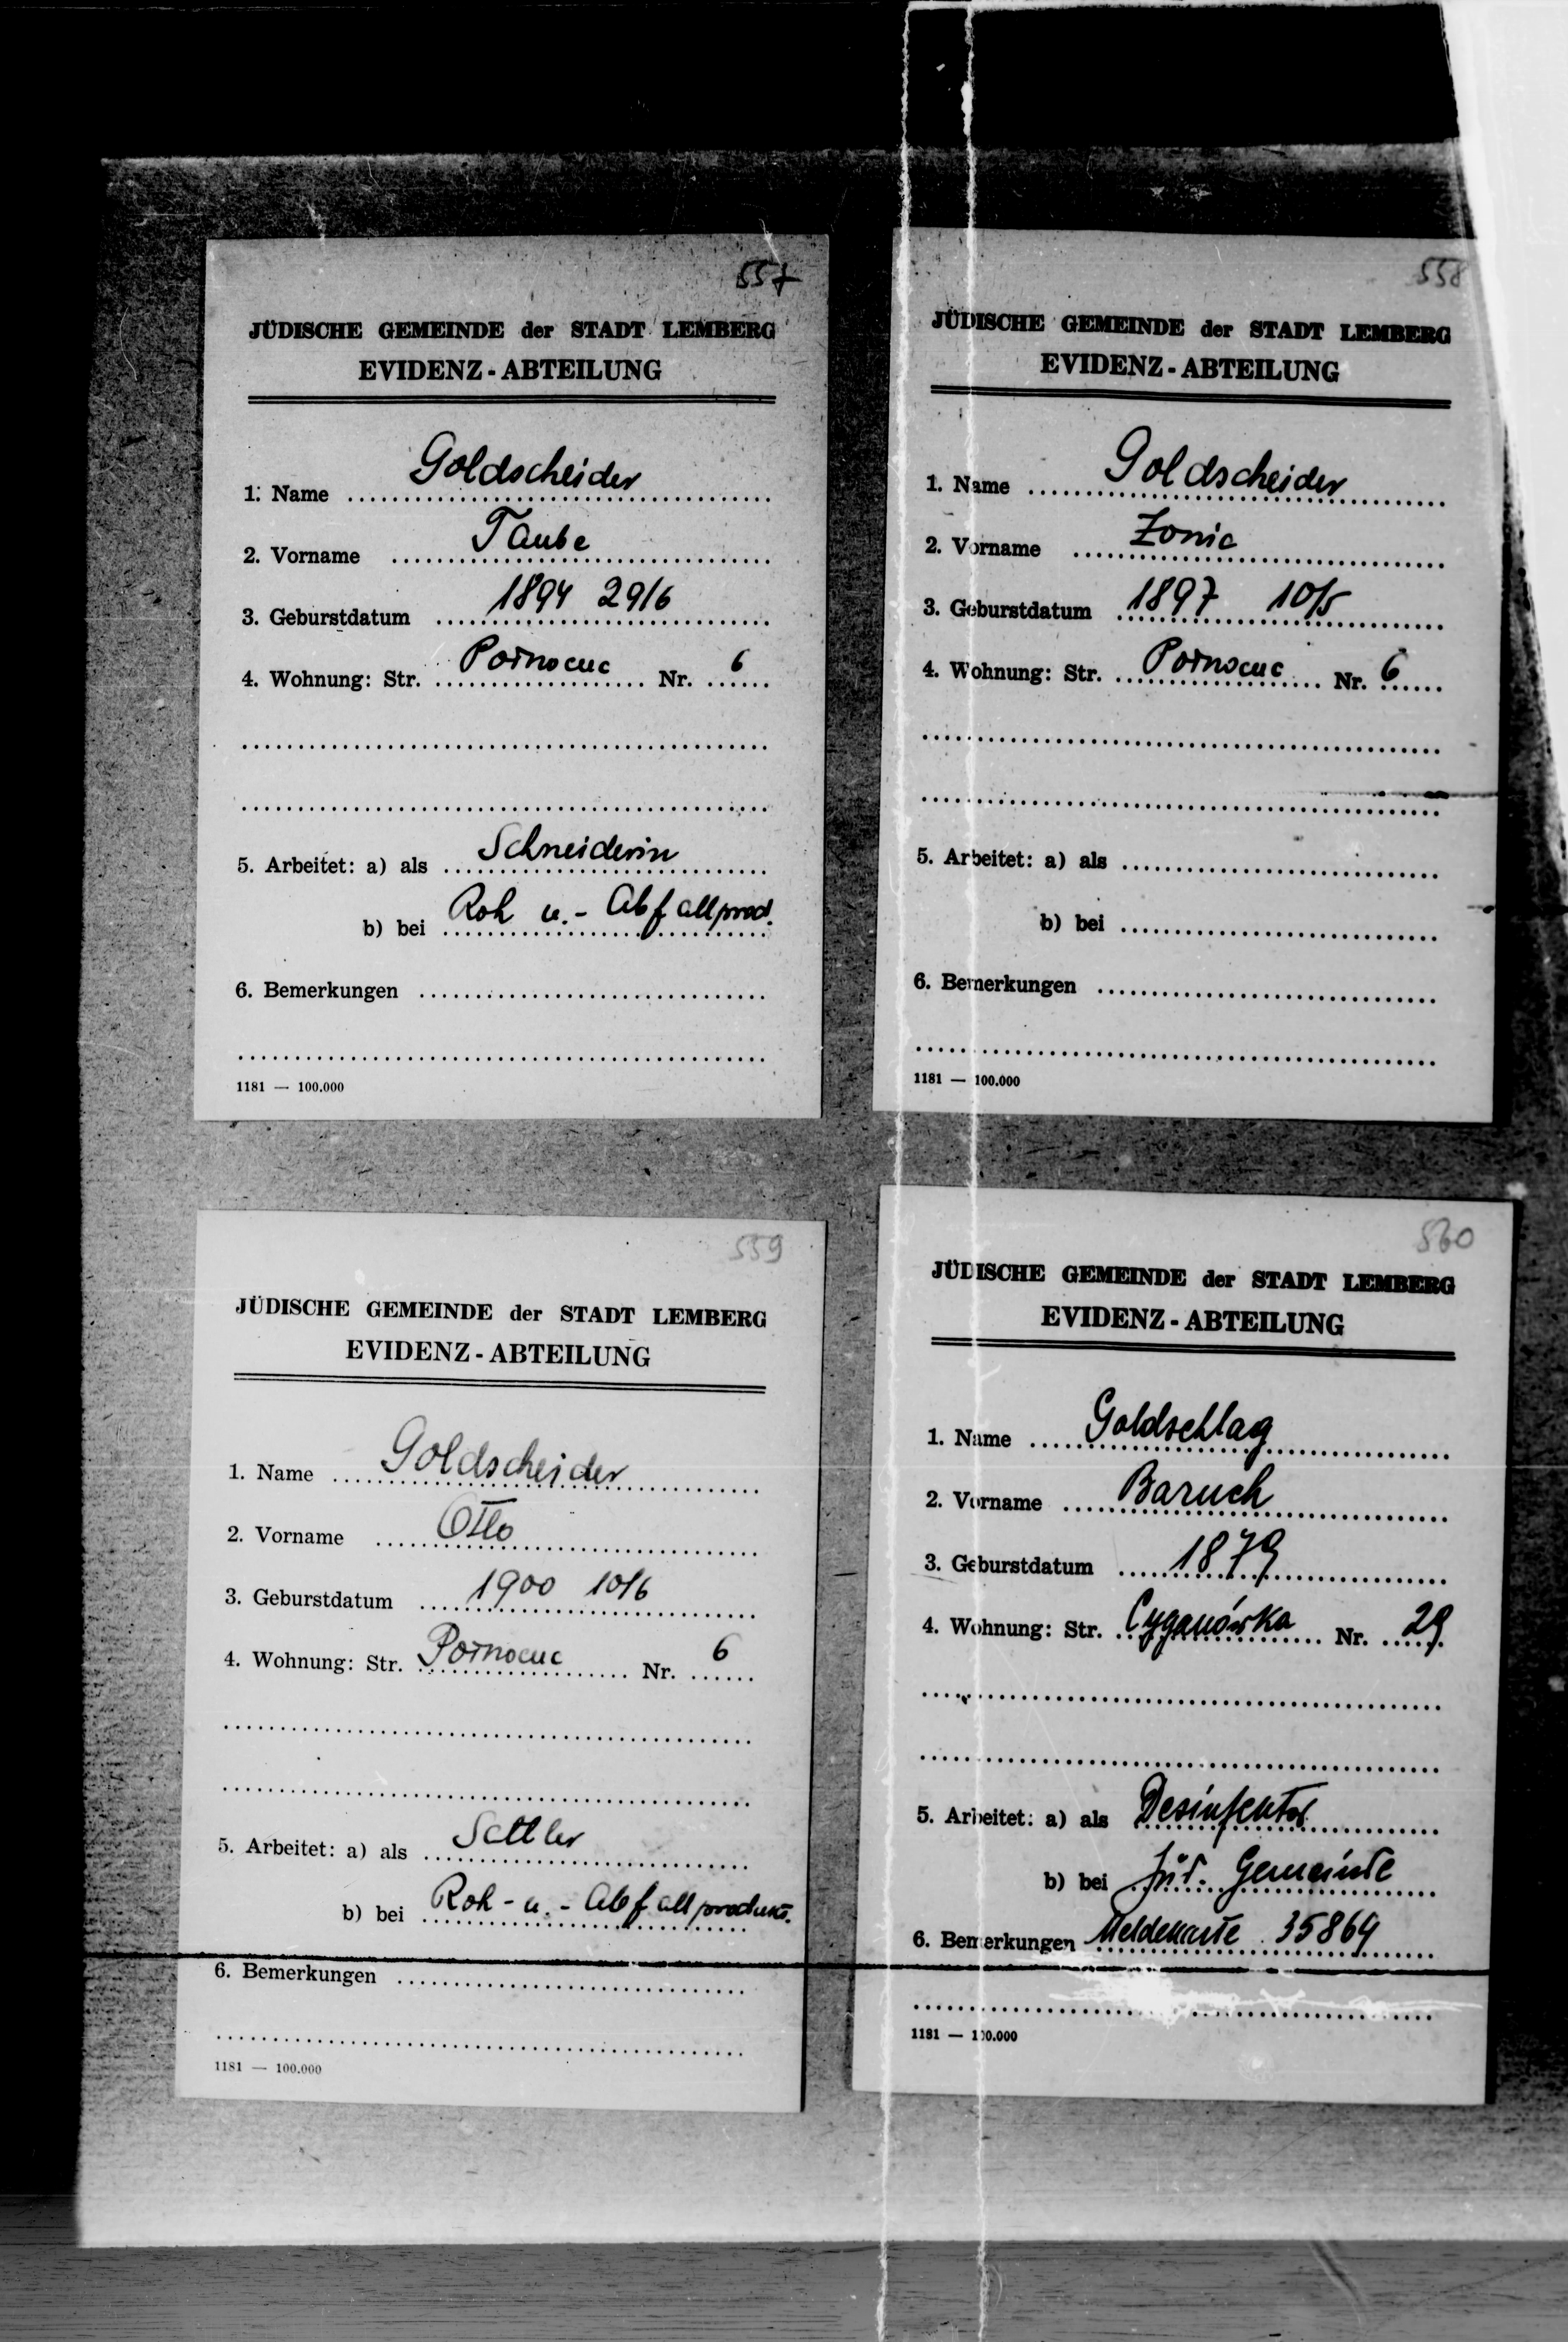 557
JÜDISCHE GEMEINDE der STADT LEMBERG
EVIDENZ - ABTEILUNG
1. Name Goldscheider
2. Vorname Taube
3. Geburstdatum 1894 29/6
4. Wohnung: Str. Pornocuc Nr. 6
5. Arbeitet: a) als Schneiderin
b) bei Roh u.- Abfallprod.
6. Bemerkungen
1181 — 100.000
558
JÜDISCHE GEMEINDE der STADT LEMBERG
EVIDENZ - ABTEILUNG
1. Name Goldscheider
2. Vorname Zonie
3. Geburstdatum 1897 10/5
4. Wohnung: Str. Pornocuc Nr. 6
5. Arbeitet: a) als
b) bei
6. Bemerkungen
1181 — 100.000
559
JÜDISCHE GEMEINDE der STADT LEMBERG
EVIDENZ - ABTEILUNG
1. Name Goldscheider
2. Vorname Otto
3. Geburstdatum 1900 10/6
4. Wohnung: Str. Pornocuc Nr. 6
5. Arbeitet: a) als Sattler
b) bei Roh - u. - Abfallprodukt.
6. Bemerkungen
1181 — 100.000
560
JÜDISCHE GEMEINDE der STADT LEMBERG
EVIDENZ - ABTEILUNG
1. Name Goldschlag
2. Vorname Baruch
3. Geburstdatum 1879
4. Wohnung: Str. Cyganówka Nr. 29
5. Arbeitet: a) als Desinfektor
b) bei Jüd. Gemeinde
6. Bemerkungen Meldekarte 35869
1181 — 100.000